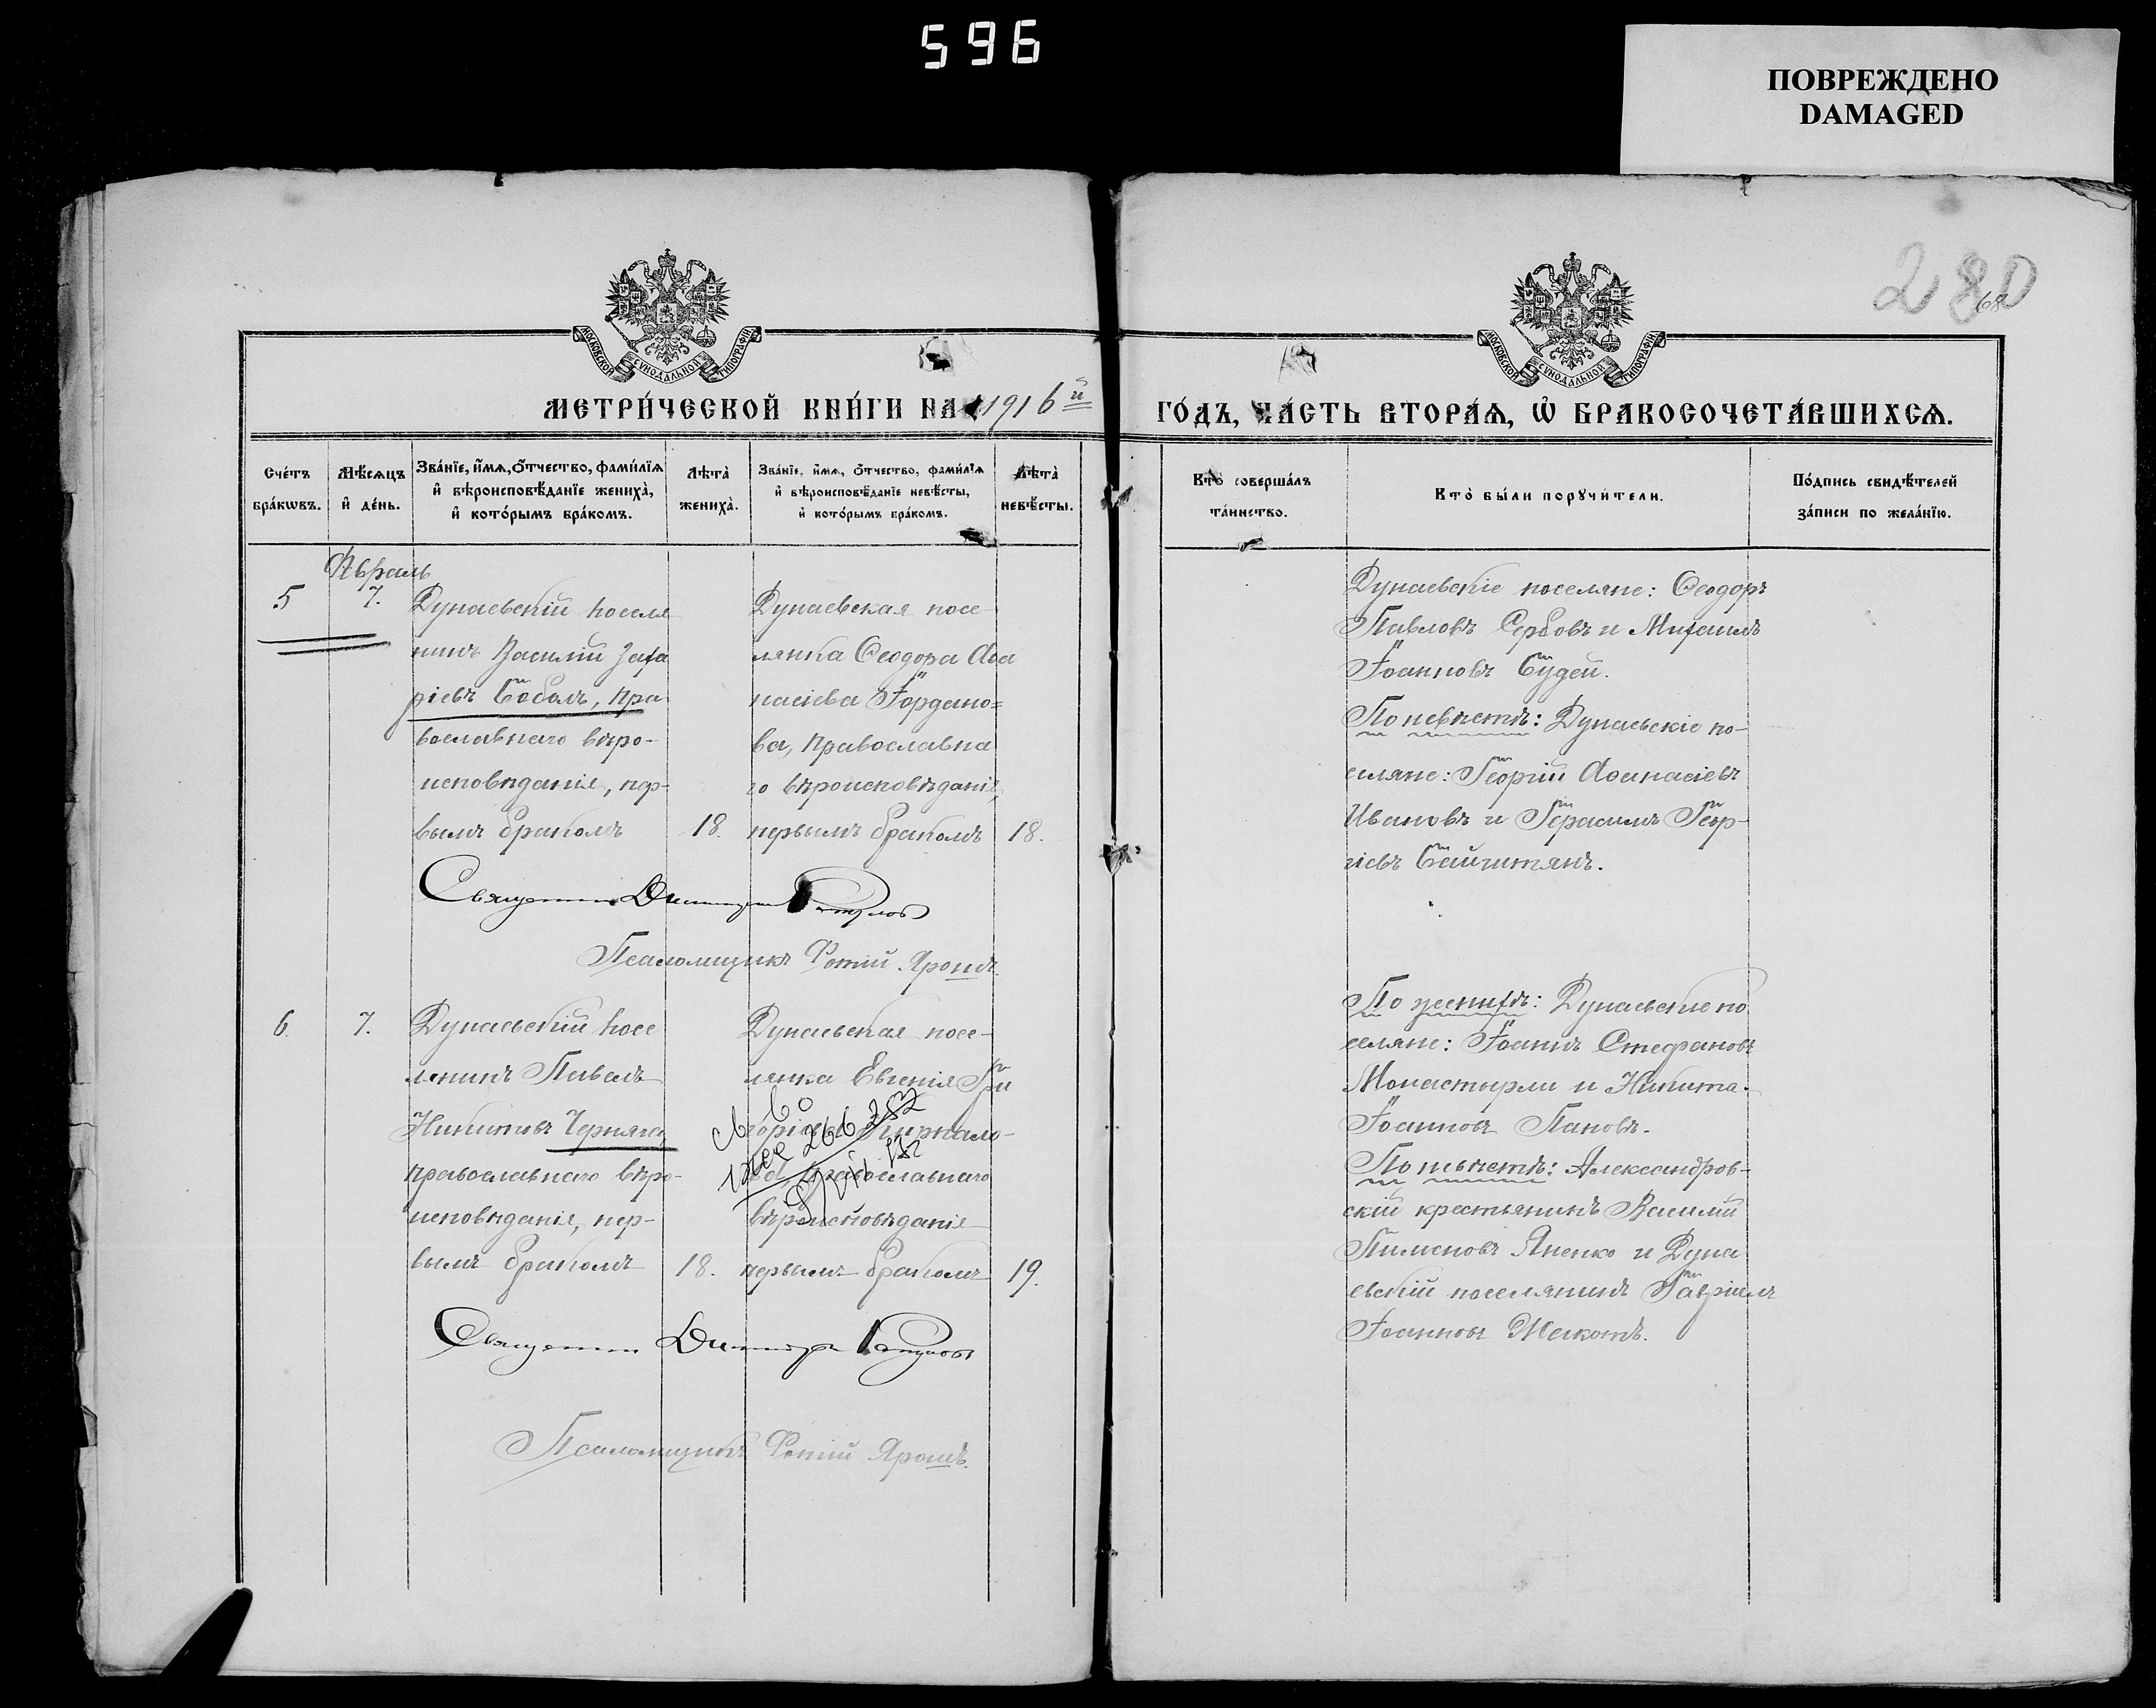 596
ПОВРЕЖДЕНО
DAMAGED
280
68
МОСКОВСКОЙ СѴНОДАЛЬНОЙ ТИПОГРАФІИ
МОСКОВСКОЙ СѴНОДАЛЬНОЙ ТИПОГРАФІИ
МЕТРИ́ЧЕСКОЙ КНИ́ГИ НА 1916й
ГО́ДЪ, ЧА́СТЬ ВТОРА́Ѧ, Ѡ҆ БРАКОСОЧЕТА́ВШИХСѦ.
Сче́тъ
бра́кѡвъ.
Мѣ́сѧцъ
и҆ де́нь.
Зва́нїе, и҆́мѧ, ѻ҆́тчество, фами́лїѧ
и҆ вѣроисповѣ́данїе жениха̀,
и҆ кото́рымъ бра́комъ.
Лѣта̀
жениха̀.
Зва́нїе, и҆́мѧ, ѻ҆́тчество, фами́лїѧ
и҆ вѣроисповѣ́данїе невѣ́сты,
и҆ кото́рымъ бра́комъ.
Лѣта̀
невѣ́сты.
Кто̀ соверша́лъ
та́инство.
Кто̀ бы́ли порꙋчи́тели.
По́дпись свидѣ́телей
за́писи по жела́нїю.
Апрѣль
5
7.
Дунаевскій поселя
нинъ Василій Заха
ріевъ Соболъ, пра
вославнаго вѣро-
исповѣданія, пер-
вымъ бракомъ
18.
Дунаевская посе-
лянка Ѳеодора Аѳа
насіева Іордано=
ва, православна
го вѣроисповѣданія,
первымъ бракомъ
18.
Священник Димитрій
Псаломщикъ Фотій Ярошъ.
Дунаевскіе поселяне: Ѳеодоръ
Павловъ Сербовъ и Михаилъ
Іоанновъ Судей.
По невѣстѣ: Дунаевскіе по-
селяне: Георгій Аѳанасіевъ
Ивановъ и Герасимъ Геор-
гіевъ
6.
7.
Дунаевскій посе
лянинъ Павелъ
Никитинъ Черняга,
православнаго вѣро-
исповѣданія, пер-
вымъ бракомъ
18.
Дунаевская посе-
лянка Евгенія Гри
горіева
ва, православнаго
вѣроисповѣданія
первымъ бракомъ
19.
266
Священник Димитрій
Псаломщикъ Фотій Ярошъ.
По женихѣ: Дунаевскіе по
селяне: Іоаннъ Стефановъ
Монастырли и Никита
Іоанновъ Пановъ.
По невѣстѣ: Александров-
скій крестьянинъ Василій
Пименовъ Яненко и Дуна
евскій поселянинъ Гавріилъ
Іоанновъ